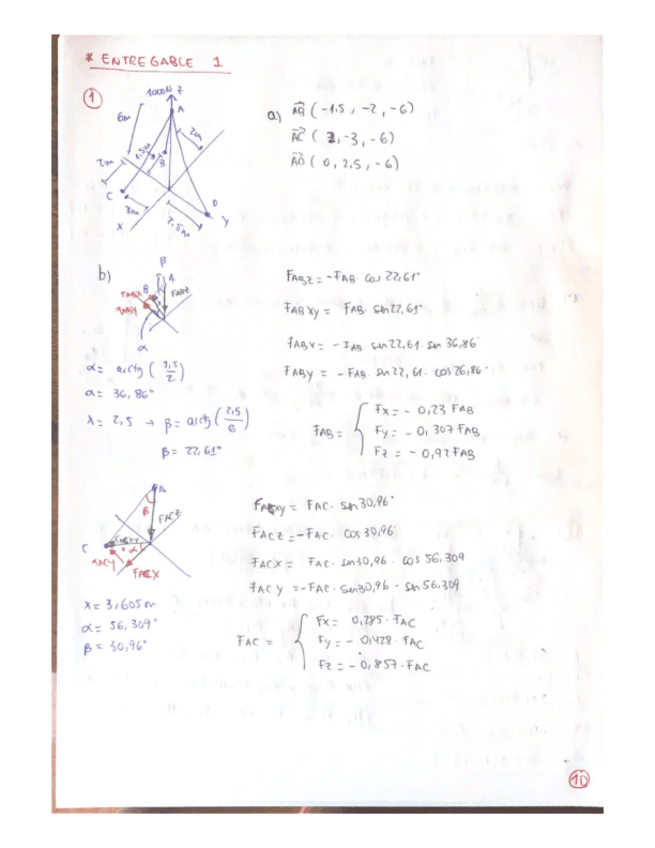 * ENTREGABLE 1
1
1000N Z
A
6m
2m
1,5m
B
2m
C
3m
X
2,5m
D
y
a) AB (-1.5, -2, -6)
AC (2,-3, -6)
AD (0, 2.5, -6)
b)
β
A
B
FABZ
α
FABZ = -FAB. cos 22,61°
FABxy = FAB. sen 22,61°
FABX = - FAB. sen 22,61. sen 36,86°
FABy = - FAB. sen 22,61. cos 26,86°
α = arctg (1,5/2)
α = 36,86°
λ = 2,5 → β = arctg (2,5/6)
β = 22,61°
FAB =
Fx = - 0,23 FAB
Fy = - 0,307 FAB
Fz = - 0,92 FAB
A
β
FACZ
C
α
FACY
FACX
FACXY = FAC. sen 30,96°
FACZ = -FAC. cos 30,96
FACX = FAC. sen 30,96. cos 56,309
FACY = -FAC. sen 30,96. sen 56,309
λ = 3,605m
α = 56,309°
β = 30,96°
FAC =
Fx = 0,285. FAC
Fy = - 0,428. FAC
Fz = - 0,857. FAC
10